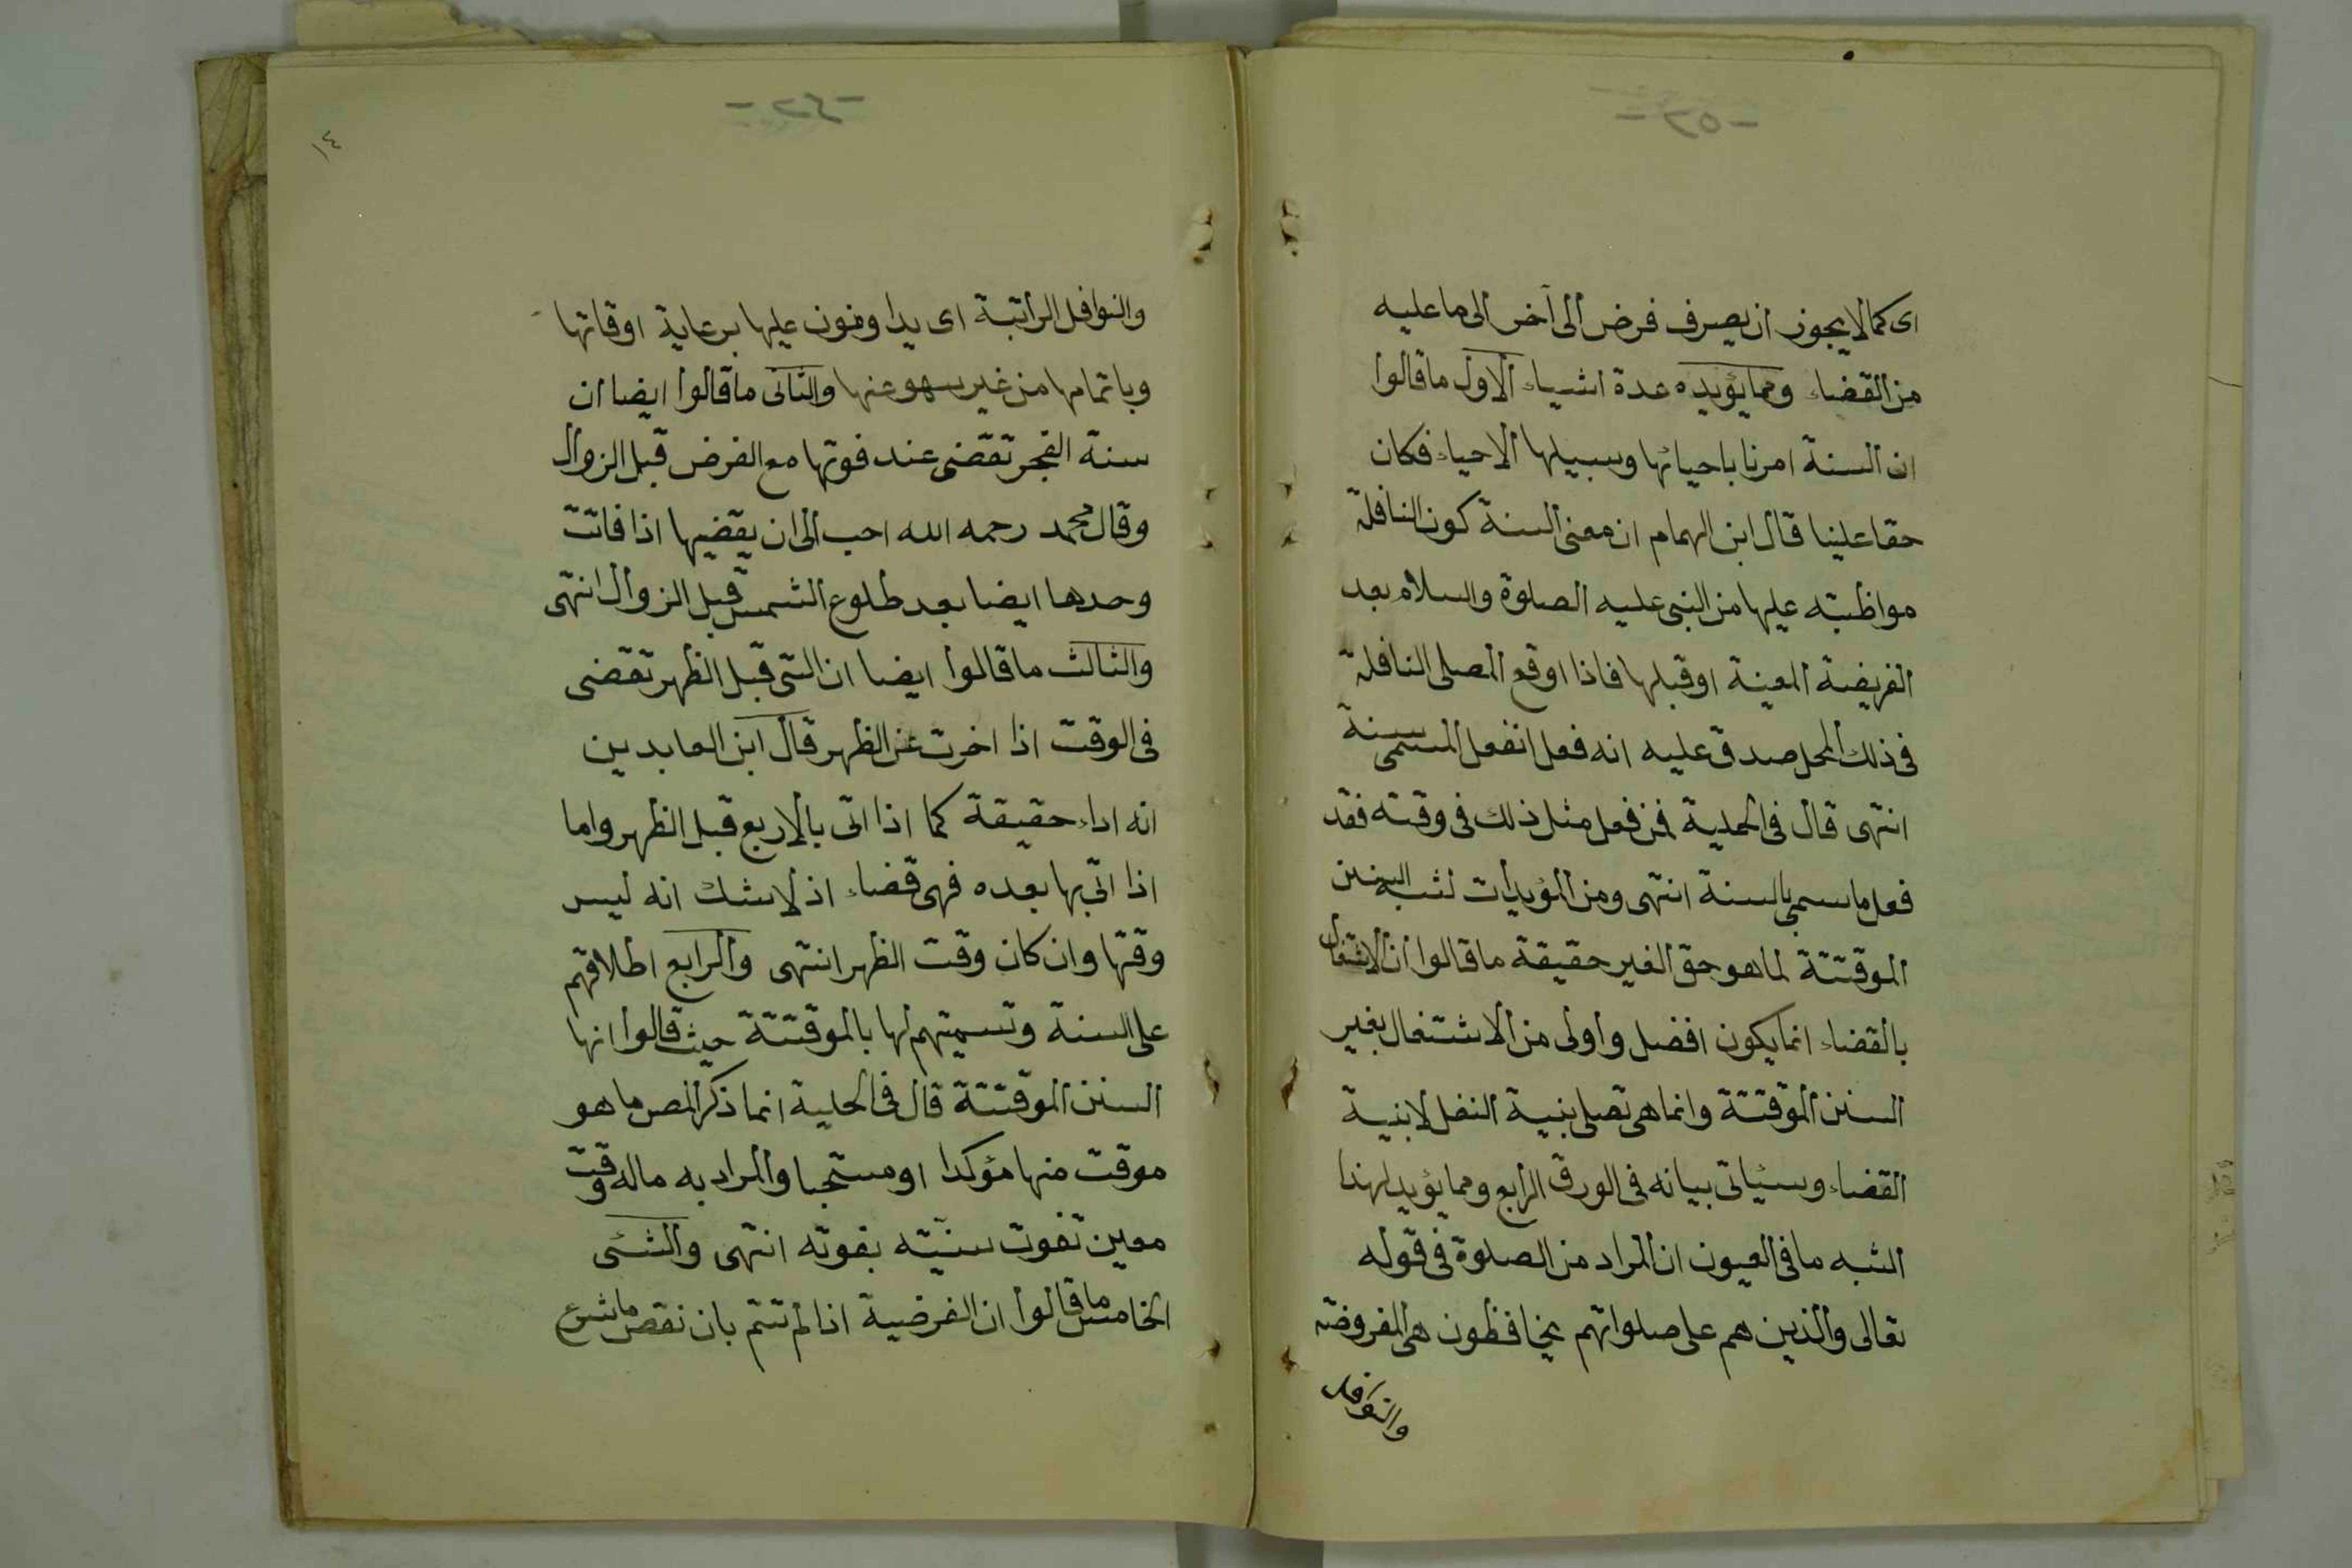 - ٢٥ -
اى كما لا يجوز ان يصرف فرض الى آخر الى ما عليه
من القضاء ومما يؤيده عدة اشياء الاول ما قالوا
ان السنة امرنا باحيائها وسبيلها الاحياء فكان
حقا علينا قال ابن الهمام ان معنى السنة كون النافلة
مواظبته عليها من النبى عليه الصلوة والسلام بعد
الفريضة المعينة او قبلها فاذا اوقع المصلى النافلة
فى ذلك المحل صدق عليه انه فعل الفعل المسمى سنة
انتهى قال فى الحمدية فمن فعل مثل ذلك فى وقته فقد
فعل ما سمى بالسنة انتهى ومن المؤيدات لشبه السنن
الموقتتة لما هو حق الغير حقيقة ما قالوا ان الاشتغال
بالقضاء انما يكون افضل واولى من الاشتغال بغير
السنن الموقتتة وانما هى تصلى بنية النفل لا بنية
القضاء وسيأتى بيانه فى الورق الرابع ومما يؤيد لهذا
الشبه ما فى العيون ان المراد من الصلوة فى قوله
تعالى والذين هم على صلواتهم يحافظون هى المفروضة
والنوافل
- ٢٤ -
١٤
والنوافل الراتبة اى يداومون عليها برعاية اوقاتها
وباتمامها من غير سهو عنها والثانى ما قالوا ايضا ان
سنة الفجر تقضى عند فوتها مع الفرض قبل الزوال
وقال محمد رحمه الله احب الى ان يقضيها اذا فاتت
وحدها ايضا بعد طلوع الشمس قبل الزوال انتهى
والثالث ما قالوا ايضا ان التى قبل الظهر تقضى
فى الوقت اذا اخرت عن الظهر قال ابن العابدين
انه اداء حقيقة كما اذا اتى بالاربع قبل الظهر واما
اذا اتى بها بعده فهى قضاء اذ لا شك انه ليس
وقتها وان كان وقت الظهر انتهى والرابع اطلاقهم
على السنة وتسميتهم لها بالموقتتة حيث قالوا انها
السنن الموقتتة قال فى الحلية انما ذكر المص ما هو
موقت منها مؤكدا او مستحبا والمراد به ما له وقت
معين تفوت سنيته بفوته انتهى والشئى
الخامس ما قالوا ان الفرضية اذا لم تتم بان نقص ما شرع